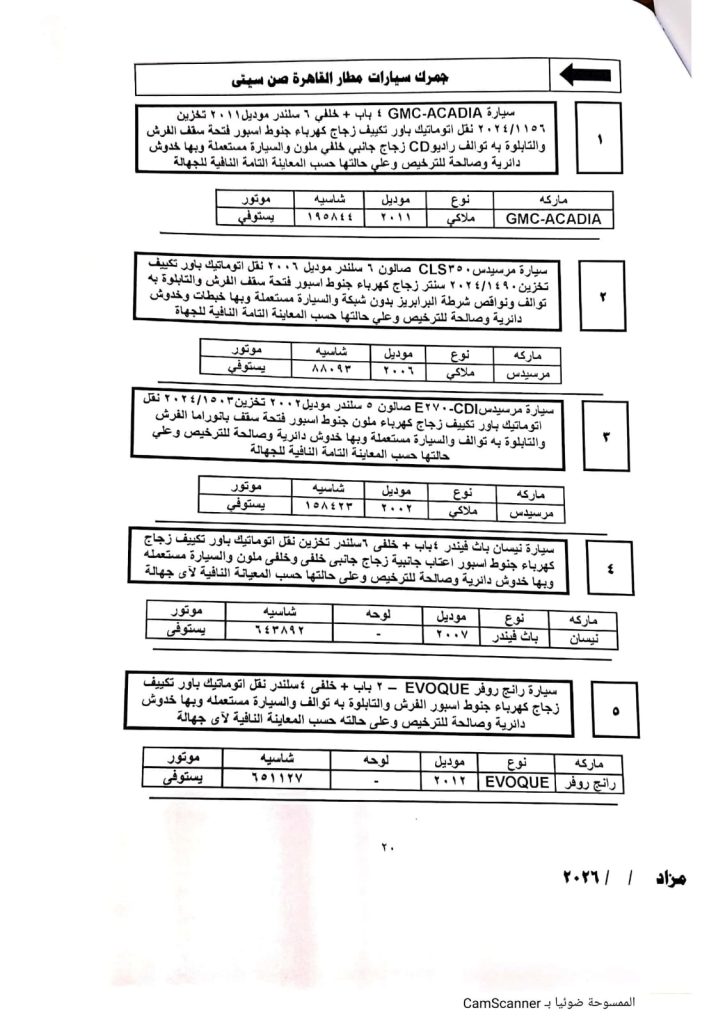 جمرك سيارات مطار القاهرة صن سيتى
١
سيارة GMC-ACADIA ٤ باب + خلفي ٦ سلندر موديل٢٠١١ تخزين
٢٠٢٤/١١٥٦ نقل اتوماتيك باور تكييف زجاج كهرباء جنوط اسبور فتحة سقف الفرش
والتابلوة به توالف راديوCD زجاج جانبي خلفي ملون والسيارة مستعملة وبها خدوش
دائرية وصالحة للترخيص وعلي حالتها حسب المعاينة التامة النافية للجهالة
ماركه نوع موديل شاسيه موتور
GMC-ACADIA ملاكي ٢٠١١ ١٩٥٨٤٤ يستوفي
٢
سيارة مرسيدس CLS٣٥٠ صالون ٦ سلندر موديل ٢٠٠٦ نقل اتوماتيك باور تكييف
تخزين٢٠٢٤/١٤٩٠ سنتر زجاج كهرباء جنوط اسبور فتحة سقف الفرش والتابلوة به
توالف ونواقص شرطة البرابريز بدون شبكة والسيارة مستعملة وبها خبطات وخدوش
دائرية وصالحة للترخيص وعلي حالتها حسب المعاينة التامة النافية للجهاة
ماركه نوع موديل شاسيه موتور
مرسيدس ملاكي ٢٠٠٦ ٨٨٠٩٣ يستوفي
٣
سيارة مرسيدسE٢٧٠-CDI صالون ٥ سلندر موديل٢٠٠٢ تخزين٢٠٢٤/١٥٠٣ نقل
اتوماتيك باور تكييف زجاج كهرباء ملون جنوط اسبور فتحة سقف بانوراما الفرش
والتابلوة به توالف والسيارة مستعملة وبها خدوش دائرية وصالحة للترخيص وعلي
حالتها حسب المعاينة التامة النافية للجهالة
ماركه نوع موديل شاسيه موتور
مرسيدس ملاكي ٢٠٠٢ ١٥٨٤٢٣ يستوفي
٤
سيارة نيسان باث فيندر ٤باب + خلفى ٦سلندر تخزين نقل اتوماتيك باور تكييف زجاج
كهرباء جنوط اسبور اعتاب جانبية زجاج جانبى خلفى وخلفى ملون والسيارة مستعمله
وبها خدوش دائرية وصالحة للترخيص وعلى حالتها حسب المعيانة النافية لآى جهالة
ماركه نوع موديل لوحه شاسيه موتور
نيسان باث فيندر ٢٠٠٧ - ٦٤٣٨٩٢ يستوفي
٥
سيارة رانج روفر EVOQUE – ٢ باب + خلفى ٤سلندر نقل اتوماتيك باور تكييف
زجاج كهرباء جنوط اسبور الفرش والتابلوة به توالف والسيارة مستعمله وبها خدوش
دائرية وصالحة للترخيص وعلي حالته حسب المعاينة النافية لآى جهالة
ماركه نوع موديل لوحه شاسيه موتور
رانج روفر EVOQUE ٢٠١٢ - ٦٥١١٢٧ يستوفي
٢٠
مزاد / / ٢٠٢٦
الممسوحة ضوئيا بـ CamScanner